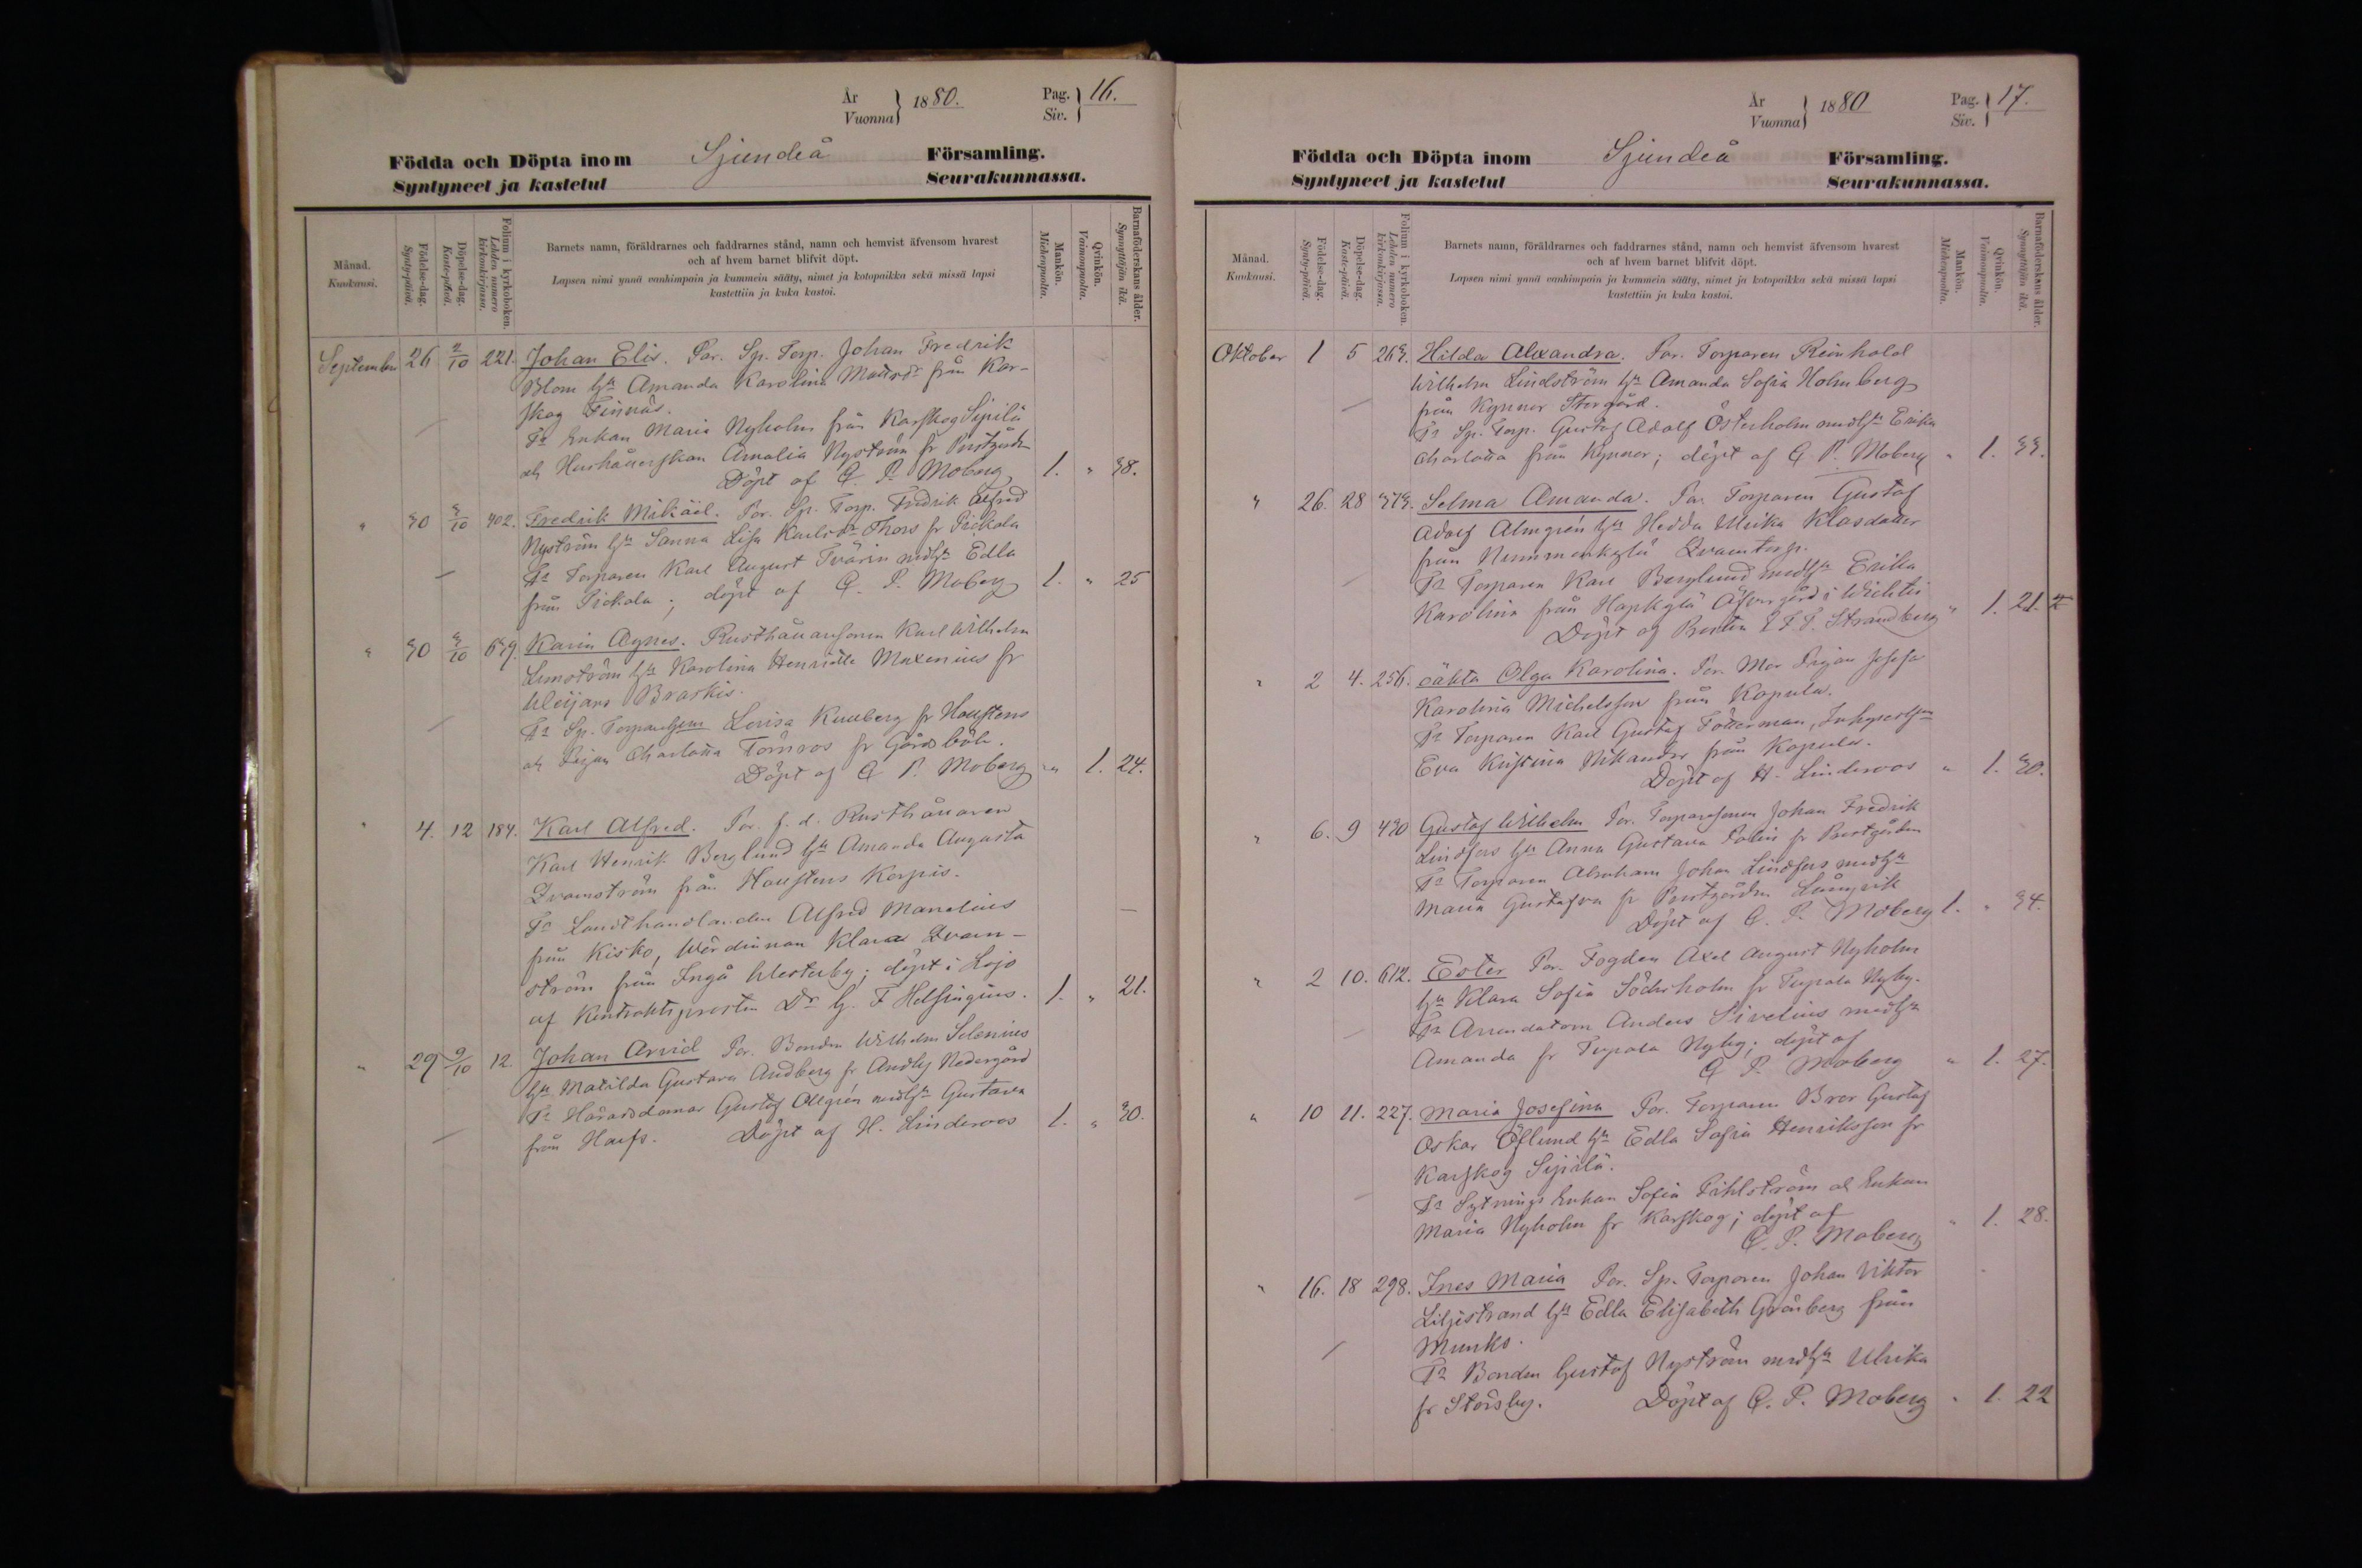 År
Vuonna
1880.
Pag.
Siv.
16.
Födda och Döpta inom Sjundeå Församling.
Syntyneet ja kastetut Seurakunnassa.
Månad.
Kuukausi.
Födelse-dag.
Synty-päivä.
Döpelse-dag.
Kaste-päivä.
Folium i kyrkoboken.
Lehden numero kirkonkirjassa.
Barnets namn, föräldrarnes och faddrarnes stånd, namn och hemvist äfvensom hvarest
och af hvem barnet blifvit döpt.
Lapsen nimi ynnä vanhimpain ja kummein sääty, nimet ja kotopaikka sekä missä lapsi
kastettiin ja kuka kastoi.
Mankön.
Miehenpuolta.
Qvinkön.
Vaimonpuolta.
Barnaföderskans ålder.
Synnyttäjän ikä.
September 26 2/10 221. Johan Elis. Par. Sp. Torp. Johan Fredrik
Blom hu Amanda Karolina från Kar-
skog Finnäs.
Fr Enkan Maria Nyholm från Karskog Sipilä
och Hushållerskan Amalia Nyström fr Prestgården
Döpt af G. P. Moberg 1. " 38.
" 30 3/10 402. Fredrik Mikäel. Par. Sp. Torp. Fredrik Alfred
Nyström hu Sanna Lisa Karlsdr Thors fr Pickala
Fr Torparen Karl August Tvärin med hu Edla
från Pickala; döpt af G. P. Moberg 1. " 25
" 30 3/10 639. Karin Agnes. Rusthållarsonen Karl Wilhelm
Lemström hu Karolina Henriette Maxenius fr
Weijars Braskis.
Fr Sp. Lovisa Kullberg fr Houstens
och Pigan Charlotta Törnroos fr Gårdsböle.
Döpt af G P. Moberg " 1. 24.
" 4. 12 184. Karl Alfred. Par. f. d. Rusthållaren
Karl Henrik Berglund hu Amanda Augusta
Qvarnström från Houstens Korpis.
Fr Landthandlanden Alfred Manelius
från Kisko, Wärdinnan Klara Qvarn-
ström från Ingå Westerby; döpt i Lojo
af Kontraktsprosten Dr G. F Helsingius. 1. " 21.
" 29 9/10 12. Johan Arvid Par. Bonden Wilhelm Selenius
hu Matilda Gustava Andberg fr Andby Nedergård
Fr Häradsdomar Gustaf Allgrén med hu Gustava
från Harfs. Döpt af H. Linderoos 1. " 30.
År
Vuonna
1880
Pag.
Siv.
17.
Födda och Döpta inom Sjundeå Församling.
Syntyneet ja kastetut Seurakunnassa.
Månad.
Kuukausi.
Födelse-dag.
Synty-päivä.
Döpelse-dag.
Kaste-päivä.
Folium i kyrkoboken.
Lehden numero kirkonkirjassa.
Barnets namn, föräldrarnes och faddrarnes stånd, namn och hemvist äfvensom hvarest
och af hvem barnet blifvit döpt.
Lapsen nimi ynnä vanhimpain ja kummein sääty, nimet ja kotopaikka sekä missä lapsi
kastettiin ja kuka kastoi.
Mankön.
Miehenpuolta.
Qvinkön.
Vaimonpuolta.
Barnaföderskans ålder.
Synnyttäjän ikä.
Oktober 1 5 263. Hilda Alexandra. Par. Torparen Reinhold
Wilhelm Lindström hu Amanda Sofia Holmberg
från Kynnar Storgård.
Fr Sp. Torp. Gustaf Adolf Österholm med hu Erika
Charlotta från Kynnar; döpt af G. P. Moberg " 1. 33.
" 26. 28 373. Selma Amanda. Par. Torparen Gustaf
Adolf Almgrén hu Hedda Ulrika Klasdotter
från Nummenkylä Qvarntorp.
Fr Torparen Karl Berglund med hu Erika
Karolina från Hapkylä Öfvergård i Wichtis
Döpt af Prosten Strandberg " 1. 21.
" 2 4. 256. oäkta Olga Karolina. Par. Mor Pigan Josefa
Karolina Michelsson från Kopula.
Fr Torparen Karl Gustaf Fötterman,
Eva Kristina Nikander från Kopula.
Döpt af H. Linderoos " 1. 30.
" 6. 9 430 Gustaf Wilhelm Par. Torparsonen Johan Fredrik
Lindfors hu Anna Gustava fr Prestgården
Fr Torparen Abraham Johan Lindfors med hu
Maria Gustafva fr Prestgården Långvik
Döpt af G. P. Moberg 1. " 34.
" 2 10. 612. Ester Par. Fogden Axel August Nyholm
hu Klara Sofia Söderholm fr Tupala Nyby.
Fr Arrendatorn Anders Sivelius med hu
Amanda fr Tupala Nyby; döpt af
G P. Moberg " 1. 27.
" 10 11. 227. Maria Josefina Par. Torparen Bror Gustaf
Oskar Öflund hu Edla Sofia Henriksson fr
Karskog Sipilä.
Fr Sytnings Enkan Sofia Pihlström och Enkan
Maria Nyholm fr Karskog; döpt af
G. P. Moberg " 1. 28.
" 16. 18 298. Ines Maria Par. Sp. Torparen Johan Viktor
Liljestrand hu Edla Elisabeth Grönberg från
Munks.
Fr Bonden Gustaf Nyström med hu Ulrika
fr Störsby. Döpt af G. P. Moberg " 1. 22